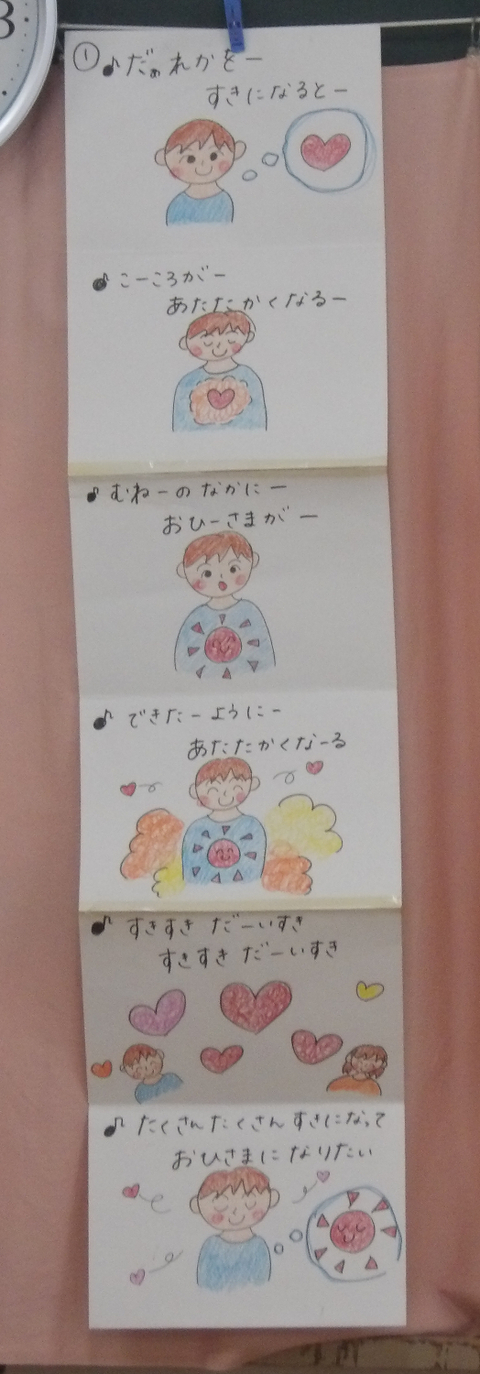 ① ♪だぁれかをー
すきになるとー
♪こーころがー
あたたかくなるー
♪むねーのなかにー
おひーさまがー
♪できたーようにー
あたたかくなーる
♪すきすき だーいすき
すきすき だーいすき
♪たくさんたくさんすきになって
おひさまになりたい
3